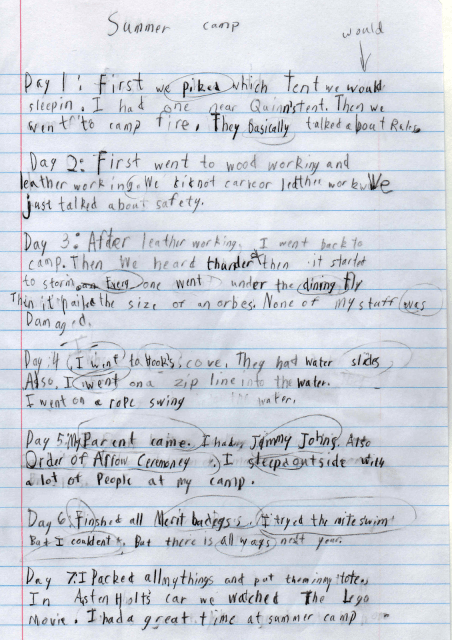 Summer camp
would
Day 1: First we piked which tent we would
sleepin. I had one near Quinn's tent. Then we
went to camp fire. They Basically talked about Rules
Day 2: First went to wood working and
leather working. We not carve or leather work We
just talked about safety.
Day 3: After leather working, I went back to
camp. Then We heard thunder then it started
to storm Every one went under the dining fly
Then it the size of an orbes. None of my staff was
Damaged.
Day 4 I went to Hook's cove. They had water slides
Also, I went on a zip line into the water.
I went on a rope swing water.
Day 5: My Parent came. I had Jimmy Johns. Also
Order of Arrow Ceremoney. I sleepd outside with
a lot of People at my camp.
Day 6 Finshed all Merit badegs. I tryed the mile swim
But I couldent. But there is all ways next year.
Day 7: I Packed all my things and put them in my tote.
In Asten Holts car we watched The Lego
Movie. I had a great time at summer camp